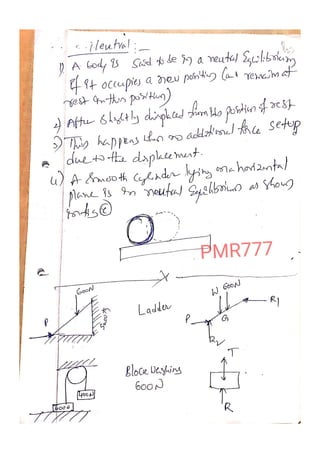 Neutral :-
1) A body is said to be in a neutral Equilibrium
If it occupies a new position (and remain at
rest in this position)
2) After slightly displaced from its position of rest
3) This happens when no additional force setup
due to the displacement.
4) A smooth cylinder lying on a horizontal
plane is in neutral Equilibrium as shown
in fig (c)
PMR777
600N
P
Ladder
W 600N
P
R1
G
R2
T
Block weighing
600N
400N
600N
R